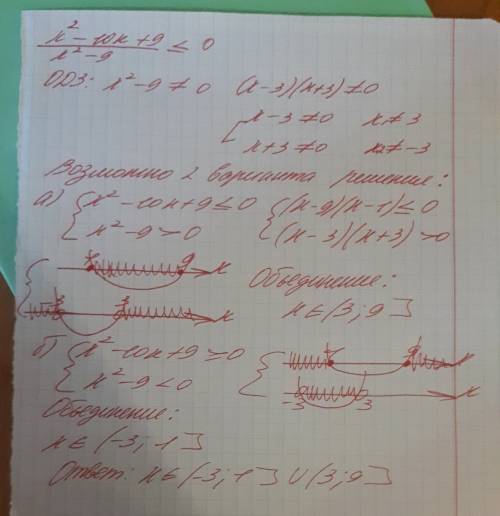 x² - 10x + 9 / x² - 9 ≤ 0
ОДЗ: x² - 9 ≠ 0 (x-3)(x+3) ≠ 0
[ x - 3 ≠ 0 x ≠ 3
x + 3 ≠ 0 x ≠ -3
Возможно 2 варианта решение:
а) { x² - 10x + 9 ≤ 0 { (x-9)(x-1) ≤ 0
x² - 9 > 0 (x-3)(x+3) > 0
1 9 x
-3 3 x
Объединение:
x ∈ (3; 9]
б) { x² - 10x + 9 ≥ 0
x² - 9 < 0
1 9 x
-3 3 x
Объединение:
x ∈ (-3; 1]
Ответ: x ∈ (-3; 1] ∪ (3; 9]